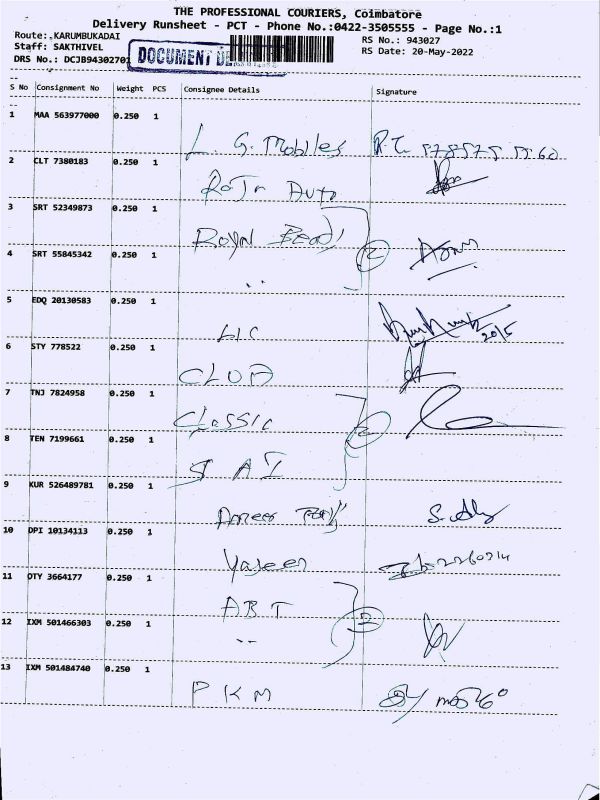 THE PROFESSIONAL COURIERS, Coimbatore
Delivery Runsheet - PCT - Phone No.:0422-3505555 - Page No.:1
Route: KARUMBUKADAI
RS No.: 943027
Staff: SAKTHIVEL
RS Date: 20-May-2022
DRS No.: DCJB94302701
DOCUMENT
S No Consignment No Weight PCS Consignee Details Signature
1 MAA 563977000 0.250 1
L. G. Mobiles
2 CLT 7380183 0.250 1
Raja Auto
3 SRT 52349873 0.250 1
Royal
4 SRT 55845342 0.250 1
2
..
5 EDQ 20130583 0.250 1
LIC
20/5
6 STY 778522 0.250 1
7 TNJ 7824958 0.250 1
Classic
2
8 TEN 7199661 0.250 1
S A I
9 KUR 526489781 0.250 1
Ameer
10 DPI 10134113 0.250 1
Yaseen
11 OTY 3664177 0.250 1
ABT
12 IXM 501466303 0.250 1
2
..
13 IXM 501484740 0.250 1
P K M